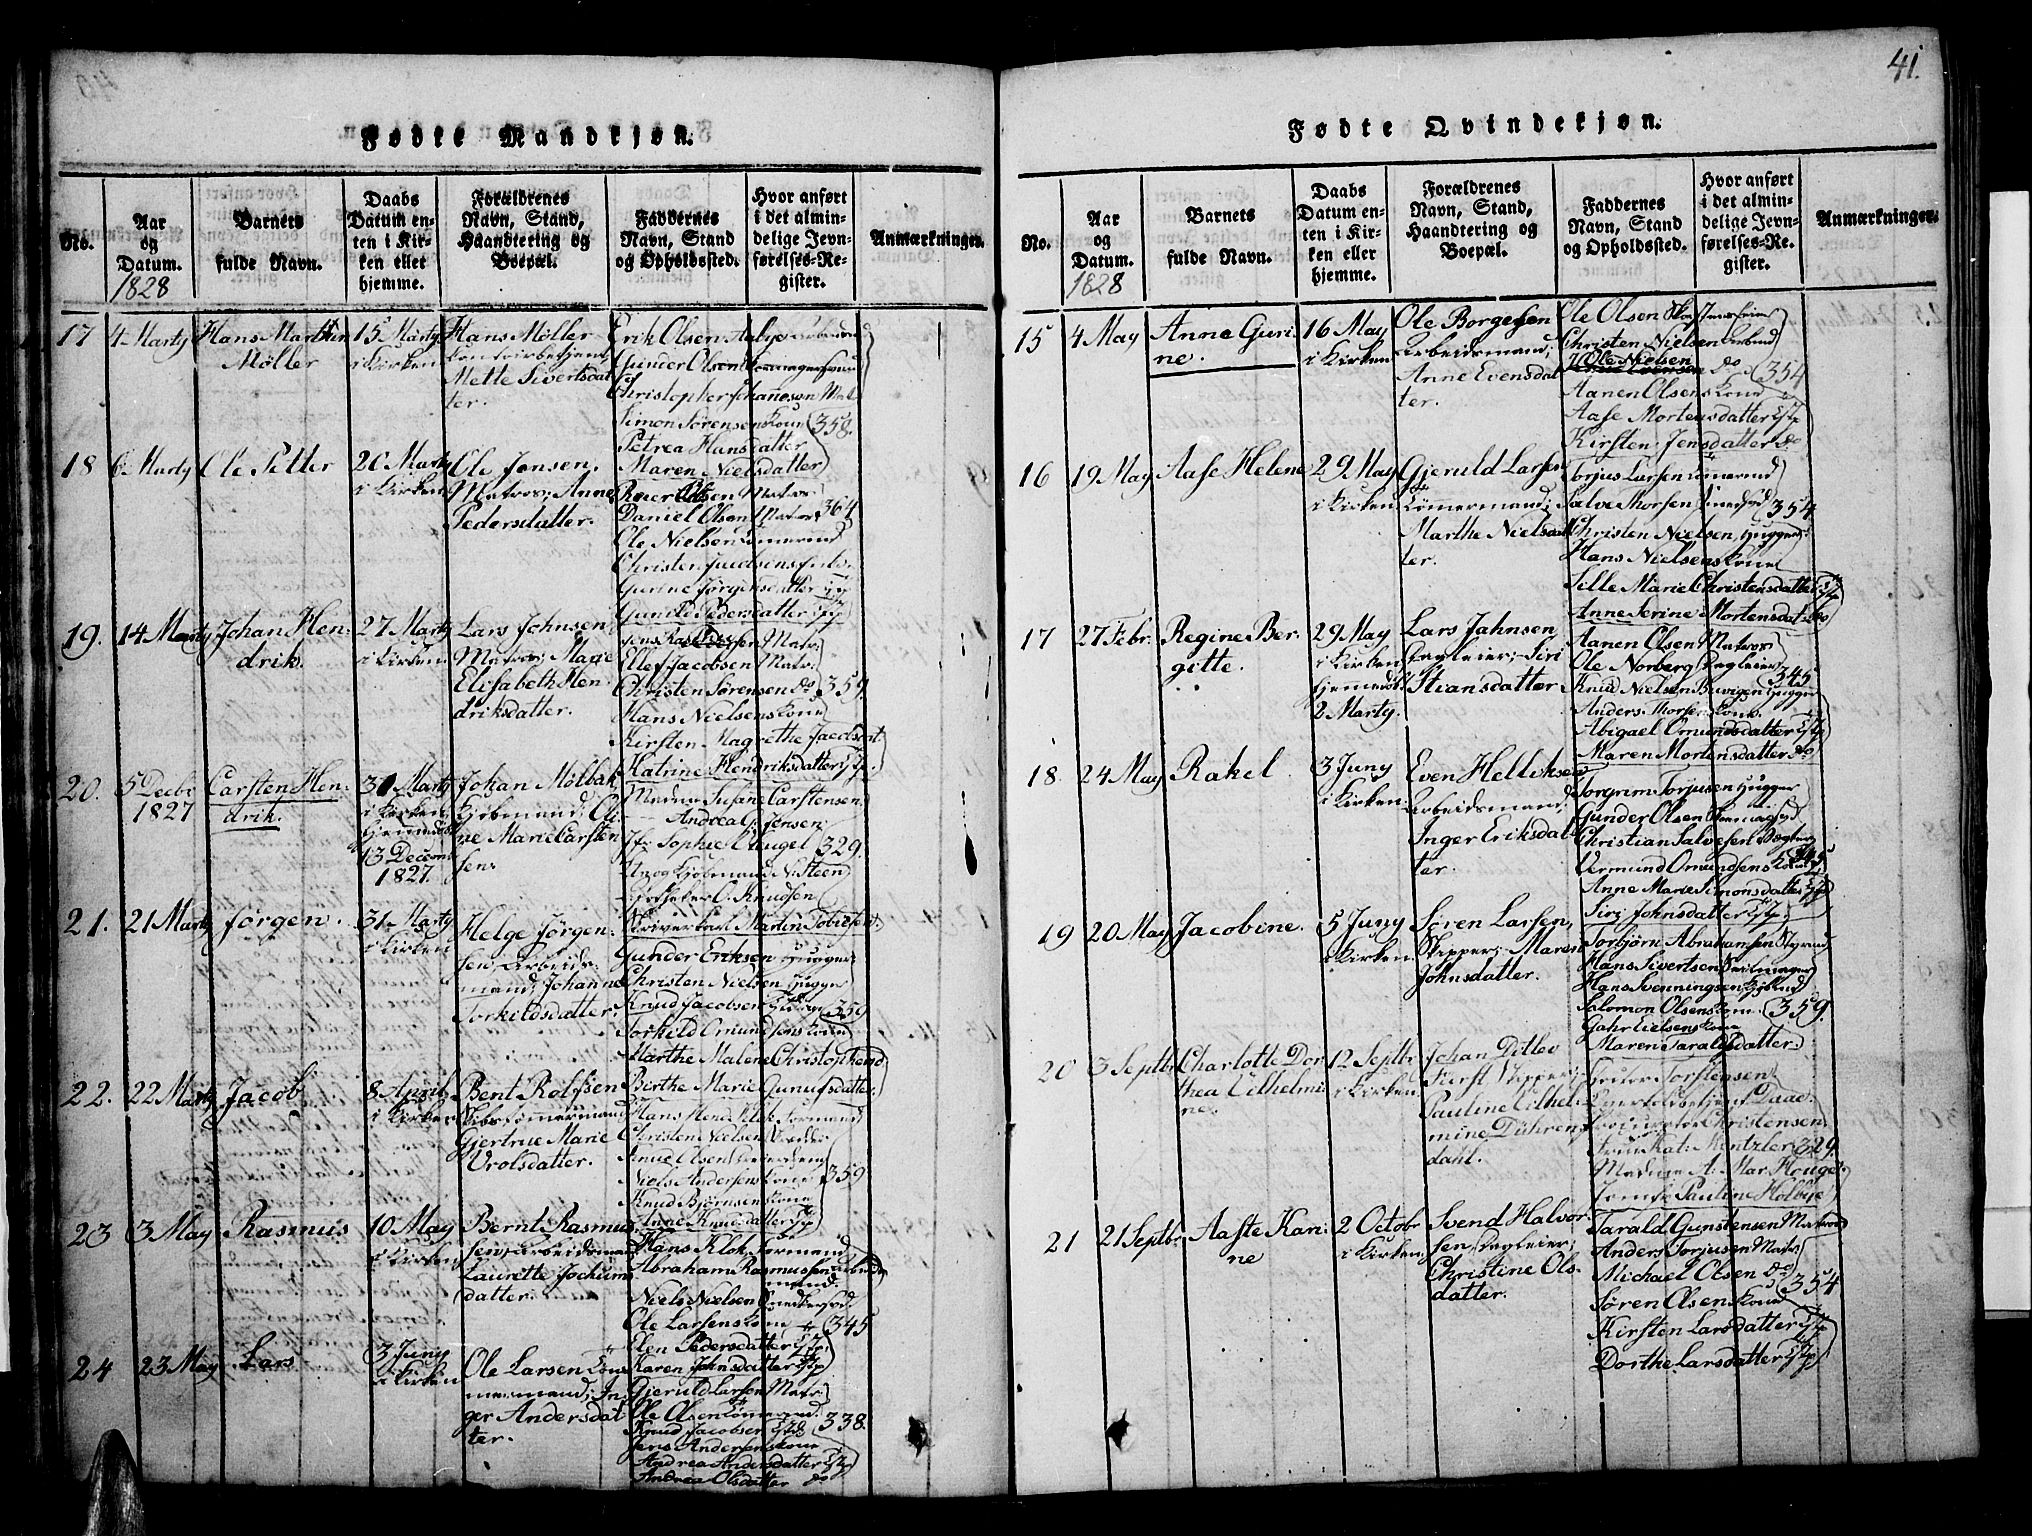 41.
Fødte Mandkjøn.
No.
Aar og Datum.
1828
Barnets fulde Navn.
Daabs Datum enten i Kirken eller hjemme.
Forældrenes Navn, Stand, Haandtering og Boepæl.
Faddernes Navn, Stand og Opholdssted.
Hvor anført i det almindelige Jevnførelses-Register.
Anmærkninger.
17
4 Marty
Hans Marthin
Møller
15 Marty
i Kirken
Hans Möller
Mette Sivertsdat
ter.
Erik Olsen Aabye
Gunder Olsen
Christopher Johannesen Mat.
Simon Sørensens Kone
358.
Petrea Hansdatter
Maren Nielsdatter
18
6 Marty
Ole Petter
20 Marty
i Kirken
Ole Jensen,
Matros; Anne
Pedersdatter.
Roier Olsen Matros
Daniel Olsen Matros
364
Ole Nielsen
Christen Juulsens
Gurine Jørgensdatter
Gunild Pedersdatter
19.
14 Marty
Johan Hen-
drik.
27 Marty
i Kirken
Lars Johnsen
Matros; Marie
Elisabeth Hen
driksdatter.
Ellef Jacobsen Matr.
Christen Sørensen do
359.
Hans Nielsens Kone
Kirsten Magrethe Jacobsdat
Katrine Hendriksdatter
20.
5 Decbr
1827
Carsten Hen-
drik.
31 Marty
i Kirken
hjemmedøbt
13 Decem
1827.
Johan Mölbak,
Kjøbmand; Oli
ne Marie Carsten
sen.
Madme Susane Carstensen
Andrea G. Jensen
Jfr Sophie Krugel
329.
Kjøbmand N. Steen
O. Knudsen
21.
21 Marty
Jørgen.
31 Marty
i Kirken
Helge Jörgen-
sen Arbeids-
mand; Johanne
Torkildsdatter.
Martin Tobiesen
Gunder Eriksen Hugger
Christen Nielsen Hugger
Knud Jacobsen
359
Torkild Omundsens Kone
Marthe Malene Christophersd
Berthe Marie Gunufsdatter
22.
22 Marty
Jacob
8 April
i Kirken
Bent Rolfsen
Skibstømmermand
Gjertrue Marie
Vrolsdatter.
Hans Klok Formand
Christen Nielsen
Niels Andersens Kone
359
Knud Bjørnsens Kone
Anne Knudsdatter
23
3 May
Rasmus
10 May
i Kirken
Bernt Rasmus
sen, Arbeidsman
Laurette Jochums
datter.
Hans Klok, Formand
Abraham Rasmussen Arbeids
mand.
Niels Nielsen
Ole Larsens Kone
345
Elen Pedersdatter
Karen Johnsdatter
24
23 May
Lars
3 Juny
i Kirken
Ole Larsen Töm
mermand; In
ger Andersdat
ter.
Gjeruld Larsen Matr.
Ole Olsen Tömermd.
338.
Knud Jacobsen
Jens Andersens Kone
Andrea Andersdatter
Andrea Olsdatter do
Fødte Qvindekjøn.
No.
Aar og Datum.
1828
Barnets fulde Navn.
Daabs Datum enten i Kirken eller hjemme.
Forældrenes Navn, Stand, Haandtering og Boepæl.
Faddernes Navn, Stand og Opholdssted.
Hvor anført i det almindelige Jevnførelses-Register.
Anmærkninger.
15
4 May
Anne Guri-
ne.
16 May
i Kirken
Ole Borgersen
Arbeidsmand;
Anne Evensdat
ter.
Ole Olsen
Christen Nielsen
Ole Nielsen do
354
Aanen Olsens Kone
Aase Mortensdatter
Kirsten Jensdatter do
16
19 May
Aase Helene
29 May
i Kirken
Gjeruld Larsen
Tömmermand;
Marthe Nielsdat
ter.
Torjus Larsen Tömermd
Salve Thorsen
354
Christen Nielsen, Hugger
Hans Nielsens Kone
Sille Marie Christensdatter
Anne Serine Mortensdat. do
17
27 Febr.
Regine Ber-
gitte.
29 May
i Kirken
hjemmedöbt
2 Marty.
Lars Jahnsen,
Dagleier; Siri
Stiansdatter.
Aanen Olsen Matros
Ole Norberg Dagleier
345
Knud Nielsen Buvigen Hugger
Anders Thorsens Kone
Abigael Omundsdatter
Maren Mortensdatter do
18
24 May
Rakel
3 Juny
i Kirken
Even Helliksen
Arbeidsmand;
Inger Eriksdat
ter.
Torgrim Torjusen Hugger
Gunder Olsen
Christian Salvesen
Vermund Omundsens Kone
345
Anne Marie Simonsdatter
Siri Johnsdatter
19
20 May
Jacobine.
5 Juny
i Kirken
Søren Larsen,
Skipper; Maren
Johnsdatter.
Torbjörn Abrahamsen Styrmd
Hans Sivertsen Seilmager
Hans Svenningsen
Salomon Olsens Kone
359.
Gahr Eielsens Kone
Maren Taraldsdatter.
20
3 Septbr
Charlotte Dor
thea Vilhelmi
ne.
12 Septbr
i Kirken
Johan Ditlev
Fürst Skipper;
Pauline Vilhel-
mine Dühren
dahl.
Torstensen
Daae
Christensen
Frue Kat: Mentzler
329.
Madme A: Mar Kruge
Jomfr Pauline Holbye
21
21 Septbr.
Aaste Kari-
ne
2 Octobr
i Kirken
Svend Halvor
sen, Dagleier;
Christine Ols-
datter.
Tarald Gunstensen Matros
Anders Torjusen Matr.
Michael Olsen do
354
Søren Olsens Kone
Kirsten Larsdatter
Dorthe Larsdatter